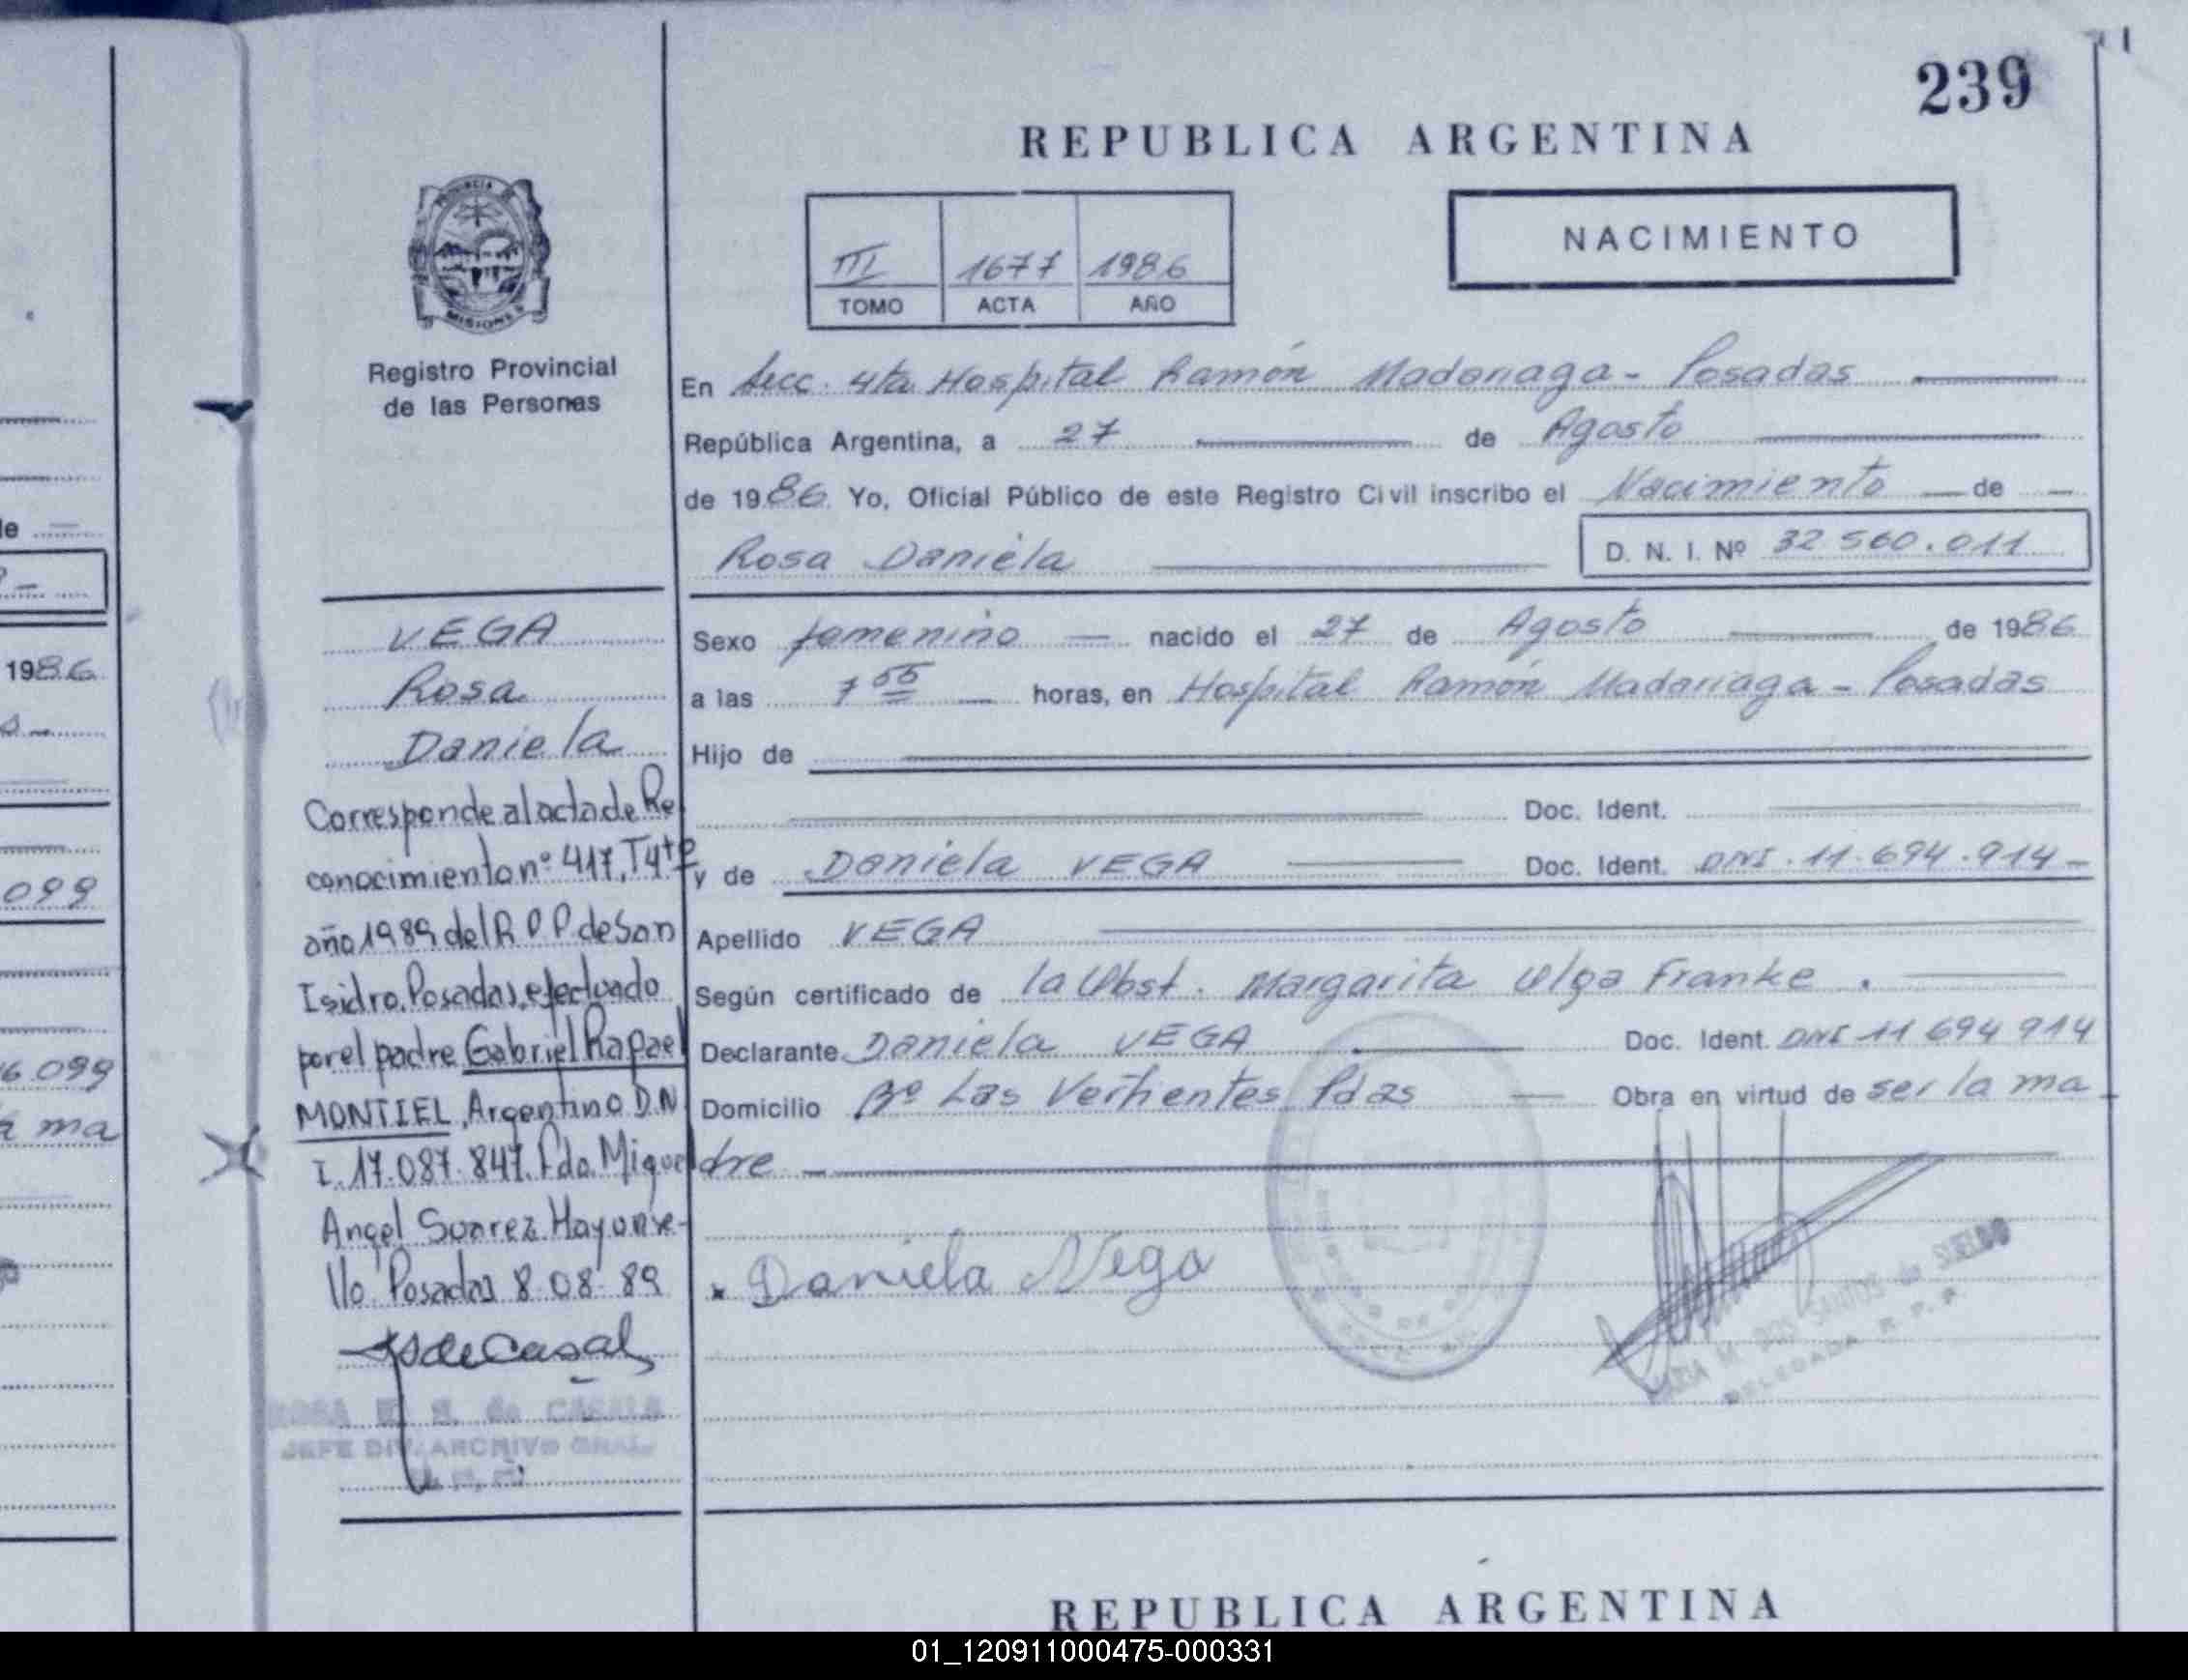 239
REPUBLICA ARGENTINA
PROVINCIA
MISIONES
Registro Provincial
de las Personas
III 1677 1986
TOMO ACTA AÑO
NACIMIENTO
En Secc. 4ta Hospital Ramón Madariaga - Posadas
República Argentina, a 27 de Agosto
de 1986. Yo, Oficial Público de este Registro Civil inscribo el Nacimiento de
Rosa Daniela
D. N. I. Nº 32 560.011
Sexo femenino nacido el 27 de Agosto de 1986
a las 7 55 horas, en Hospital Ramón Madariaga - Posadas
Hijo de
Doc. Ident.
y de Daniela VEGA Doc. Ident. DNI. 11.694.914-
Apellido VEGA
Según certificado de la Obst. Margarita Olga Franke.
Declarante Daniela VEGA Doc. Ident. DNI 11 694 914
Domicilio Bº Las Vertientes Pdas Obra en virtud de ser la ma
dre
Daniela Vega
DOS SANTOS de
DELEGADA R. P. P.
VEGA
Rosa
Daniela
Corresponde al acta de Re
conocimiento nº 417, T 4tº
año 1989 del R P P de San
Isidro. Posadas, efectuado
por el padre Gabriel Rafael
MONTIEL, Argentino D.N
I. 17.087.847. Fdo. Miguel
Angel Suarez. Hay un se-
llo. Posadas 8 08 89
ROSA de CASALS
JEFE DIV. ARCHIVO GRAL.
de
1986
099
6.099
ma
REPUBLICA ARGENTINA
01_120911000475-000331